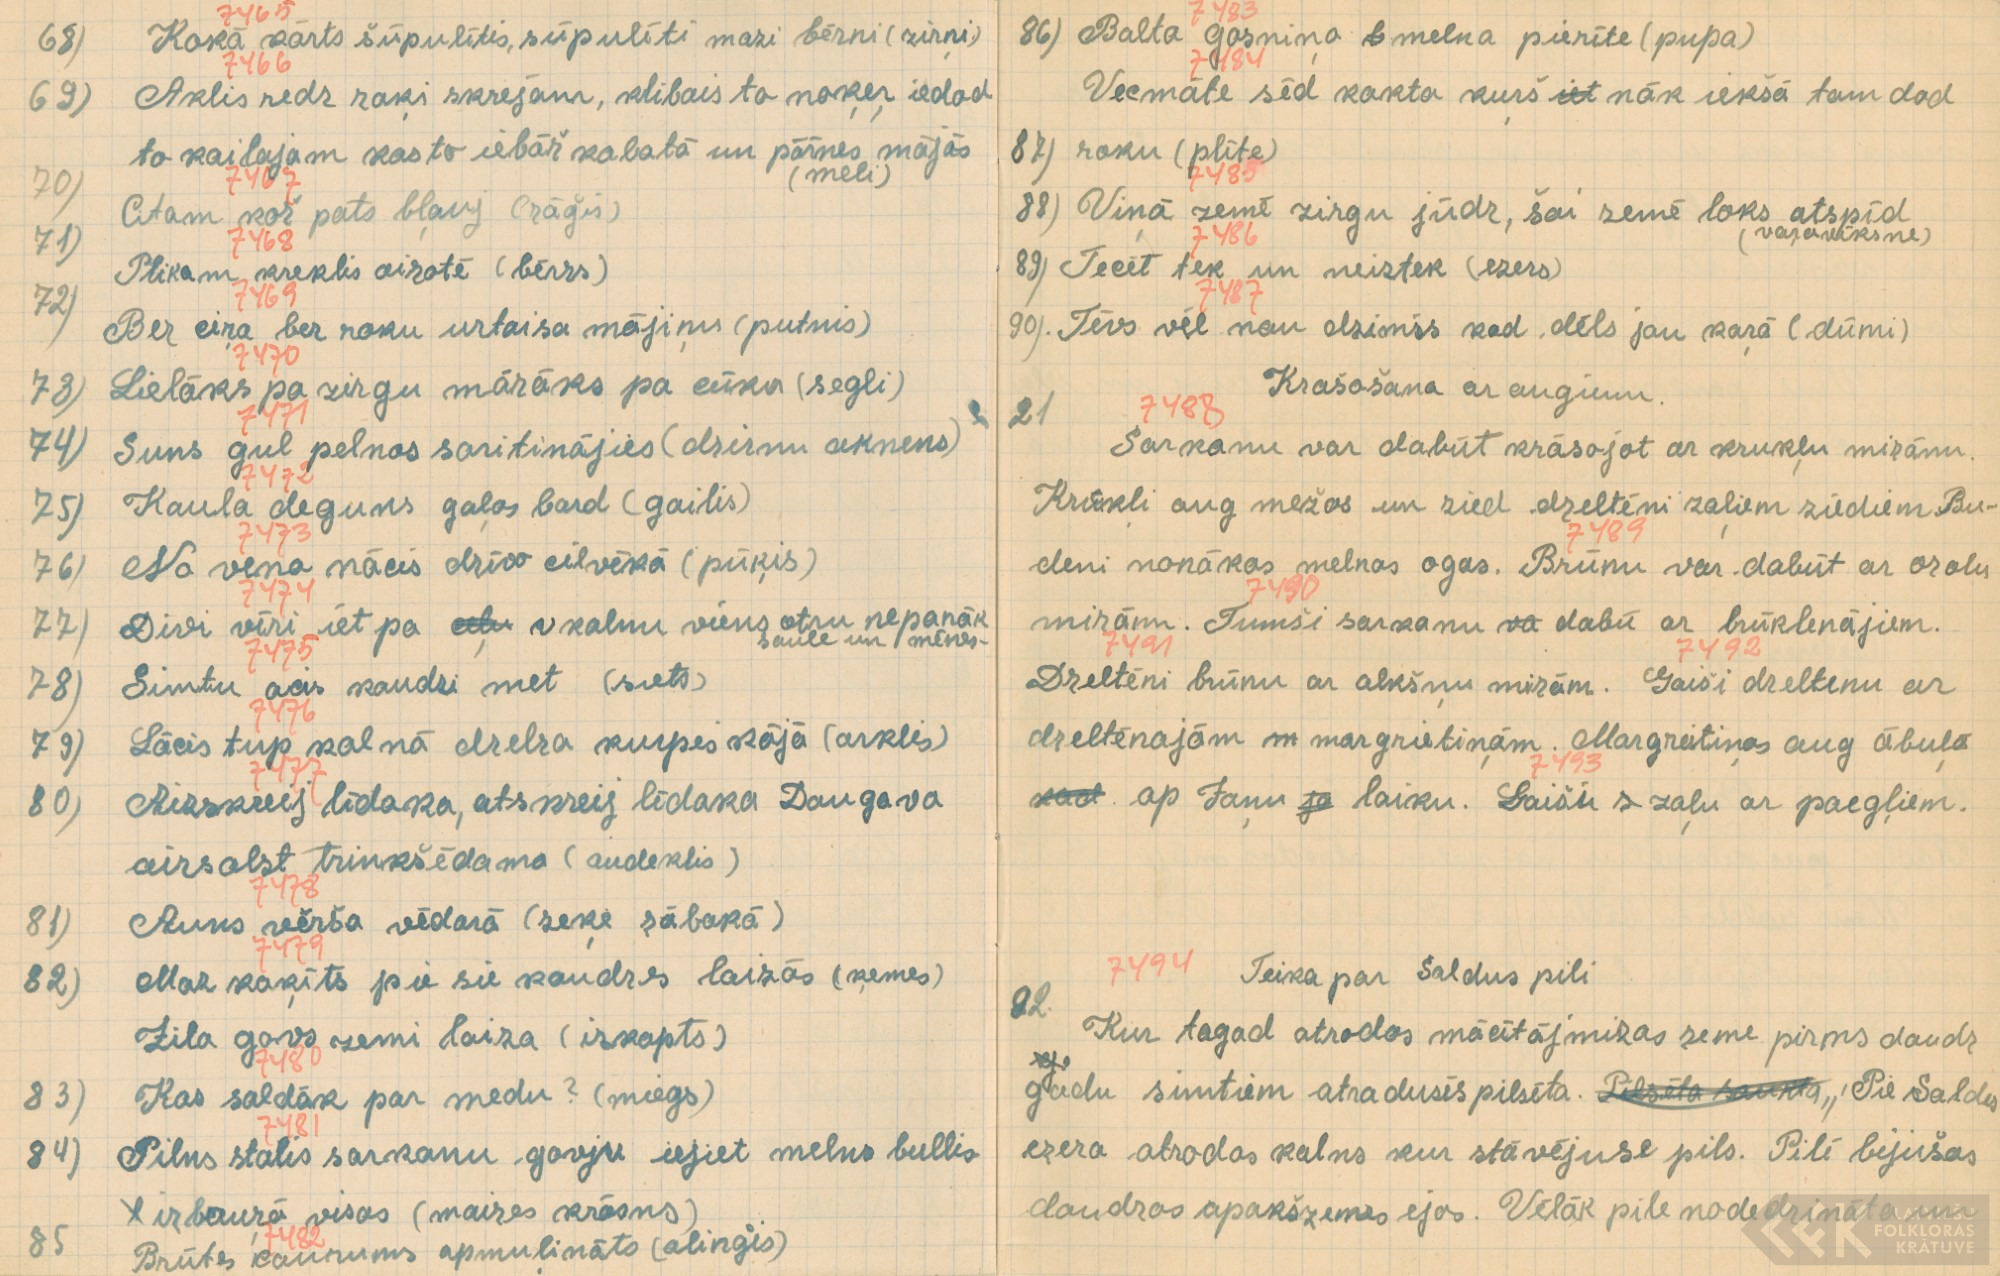 7465
68) Kokā kārts šūpulītis, sūpulīti mazi bērni (zirņi)
7466
69) Aklis redz zaķi skrējam, klibais to noķeŗ, iedod
to kailajam kas to iebāž kabatā un pārnes mājās
(meli)
7467
70) Citam kož pats bļauj (zāģis)
7468
71) Plikam krekls aizotē (bērzs)
7469
72) Bez cirņa bez roku uztaisa mājiņu (putnis)
7470
73) Lielāks pa zirgu mārāks pa cūku (segli)
7471
74) Suns gul pelnos saritinājies (dzirnu akmens)
7472
75) Kaula deguns gaļas bard (gailis)
7473
76) No vēna nācis dzīvo cilvēkā (pūķis)
7474
77) Divi vīri iet pa kalnu viens otru nepanāk
saule un mēnes-
7475
78) Simtu acis kaudzi met (siets)
7476
79) Lācis tup kalnā dzelza kurpes kājā (arklis)
7477
80) Aizskreij līdaka, atskreij līdaka Daugava
aizsalst trinkšēdama (audeklis)
7478
81) Auns vērša vēdarā (zeķe zābakā)
7479
82) Maz kaķīts pie sie kaudzes laizās (ķemes)
Zila govs zemi laiza (izkapts)
7480
83) Kas saldāk par medu? (miegs)
7481
84) Pilns stalis sarkanu govju ieiet melns bullis
x izbauŗā visas (maizes krāsns)
7482
85 Brūtes caurums apmuļināts (aliņģis)
7483
86) Balta gosniņa b melna pierīte (pupa)
7484
Vecmāte sēd kakta kurš iet nāk iekšā tam dod
87) roku (plīte)
7485
88) Viņā zemē zirgu jūdz, šai zemē loks atspīd
(varavīksne)
7486
89) Tecēt tek un neiztek (ezers)
7487
90). Tēvs vēl nau dzimis kad dēls jau kaŗā (dūmi)
Krašošana ar augiem.
21 7488
Sarkanu var dabūt krāsojot ar krukļu mizāmu.
Krūkļi aug mežos un zied dzeltēni zaļiem ziediem Bu-
7489
deni nonākas melnas ogas. Brūnu var dabūt ar ozolu
7490
mizāmu. Tumši sarkanu va dabū ar brūklenājiem.
7491 7492
Dzeltēni būnu ar alkšņu mizām. Gaiši dzeltenu ar
dzeltēnajām m margrietiņām. Margreitiņas aug ābuļā
7493
kad ap Jaņu ja laiku. Gaiši s zaļu ar paegļiem.
7494 Teika par Saldus pili
22.
Kur tagad atrodas mācītājmizas zeme pirms daudz
gadu simtiem atradusēs pilsēta. Pilsēta saukta „Pie Saldus
ezera atrodas kalns kur stāvējuse pils. Pilī bijušas
daudzas apakšzemes ejas. Vēlāk pile nodedzināta un
LATVIEŠU FOLKLORAS KRĀTUVE